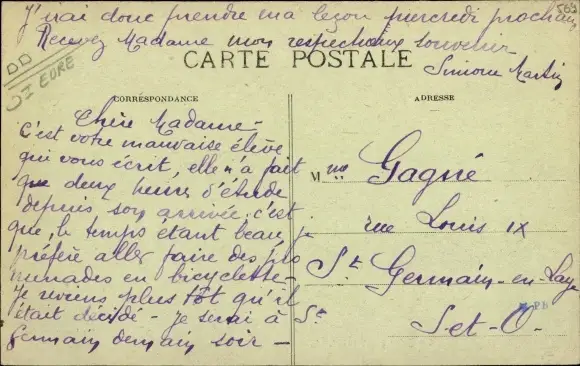 J'irai donc prendre ma leçon mercredi prochain
Recevez Madame mon respectueux souvenir
Simone Martin
CARTE POSTALE
DD
ST EURE
CORRESPONDANCE
ADRESSE
Chère Madame -
C'est votre mauvaise élève
qui vous écrit, elle n'a fait
que deux heures d'étude
depuis son arrivée, c'est
que, le temps étant beau, je
préfère aller faire des pro
menades en bicyclette -
Je reviens plus tôt qu'il
était décidé - Je serai à St
Germain demain soir -
Mme Gagné
rue Louis IX
St Germain-en-Laye
S-et-O-